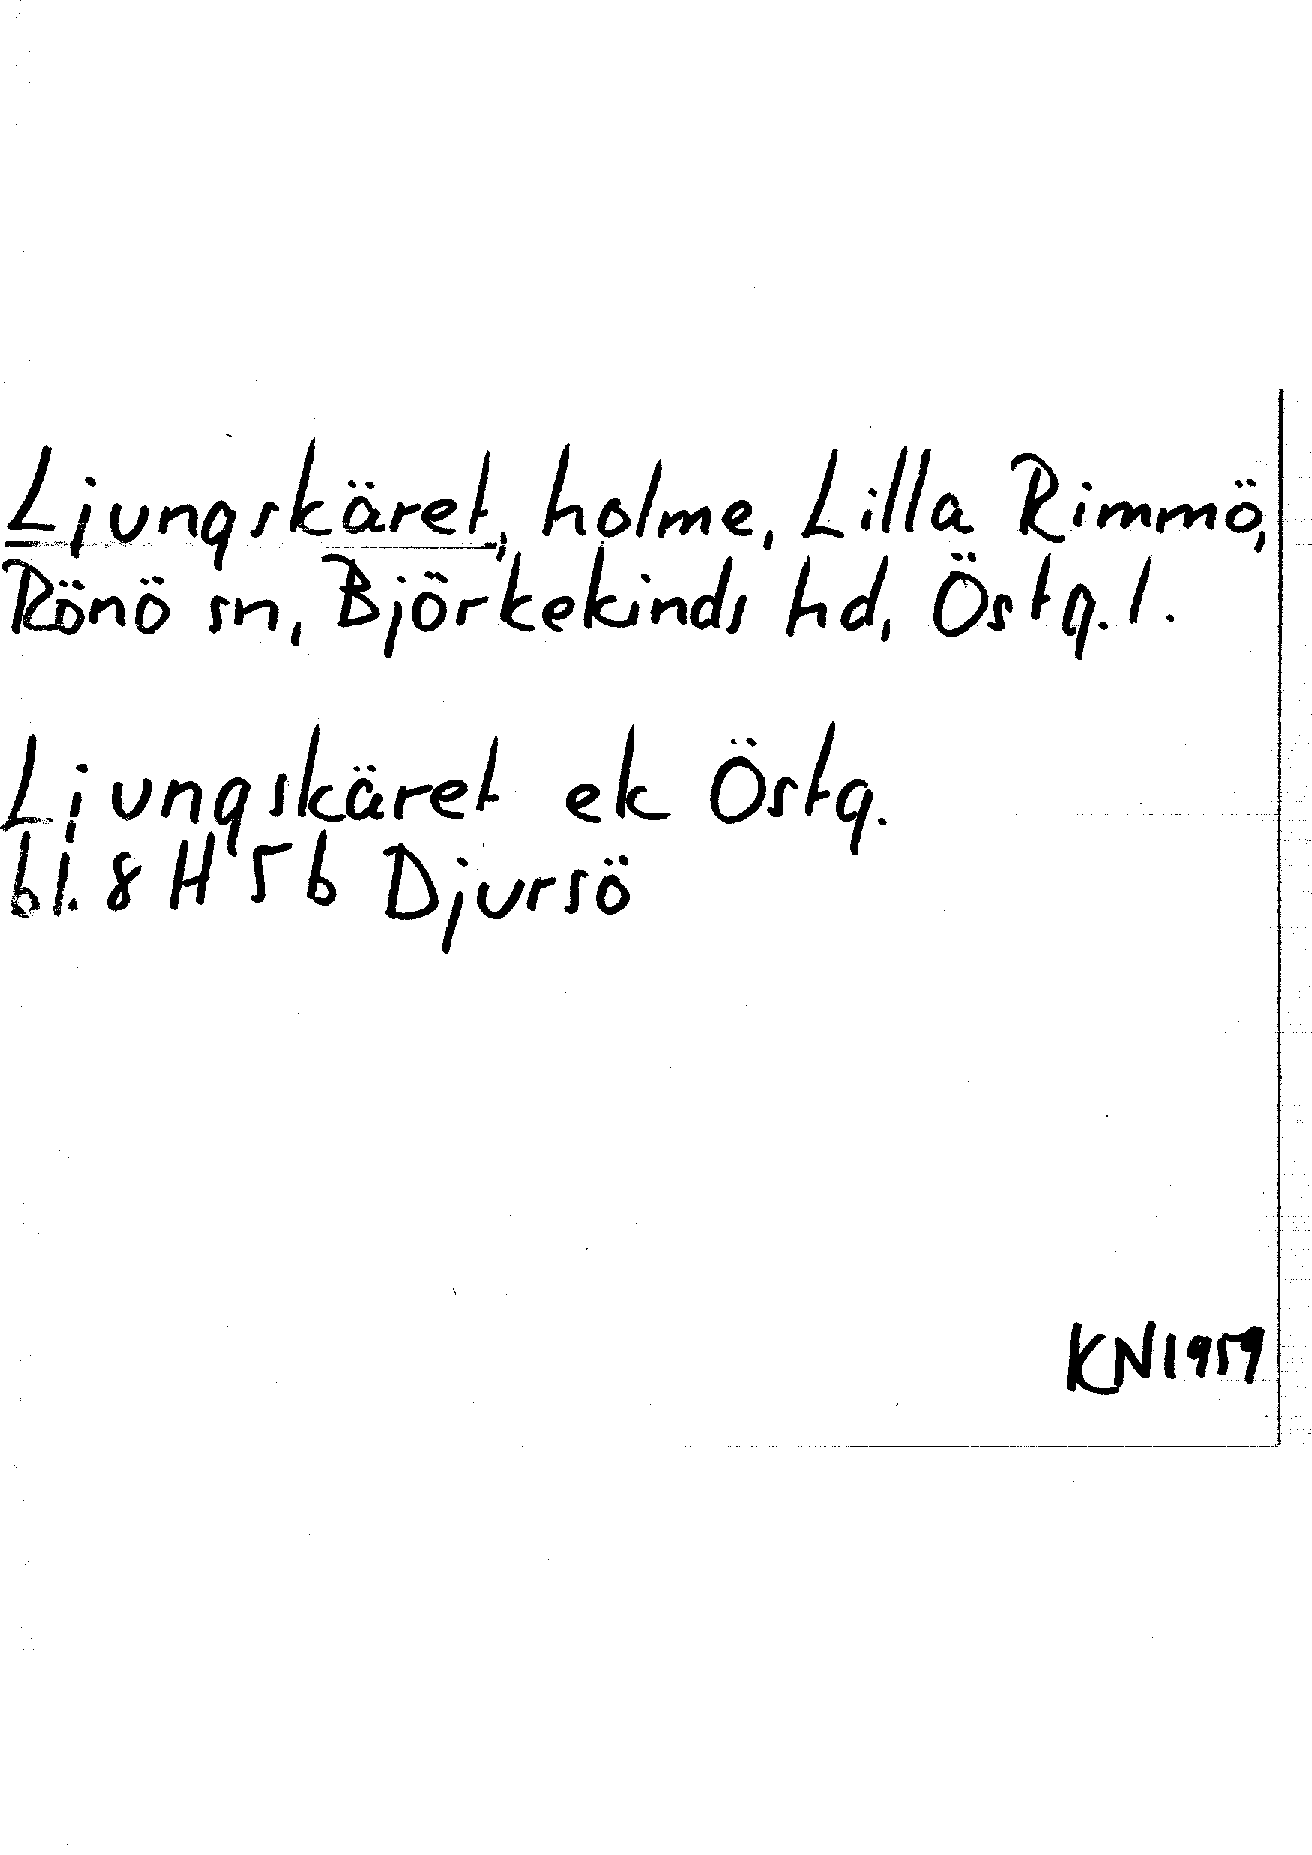 Ljungskäret, holme, Lilla Rimmö,
Rönö sn, Björkekinds hd, Östg. l.
Ljungskäret ek Östg.
bl. 8 H 5 b Djursö
KN 1959